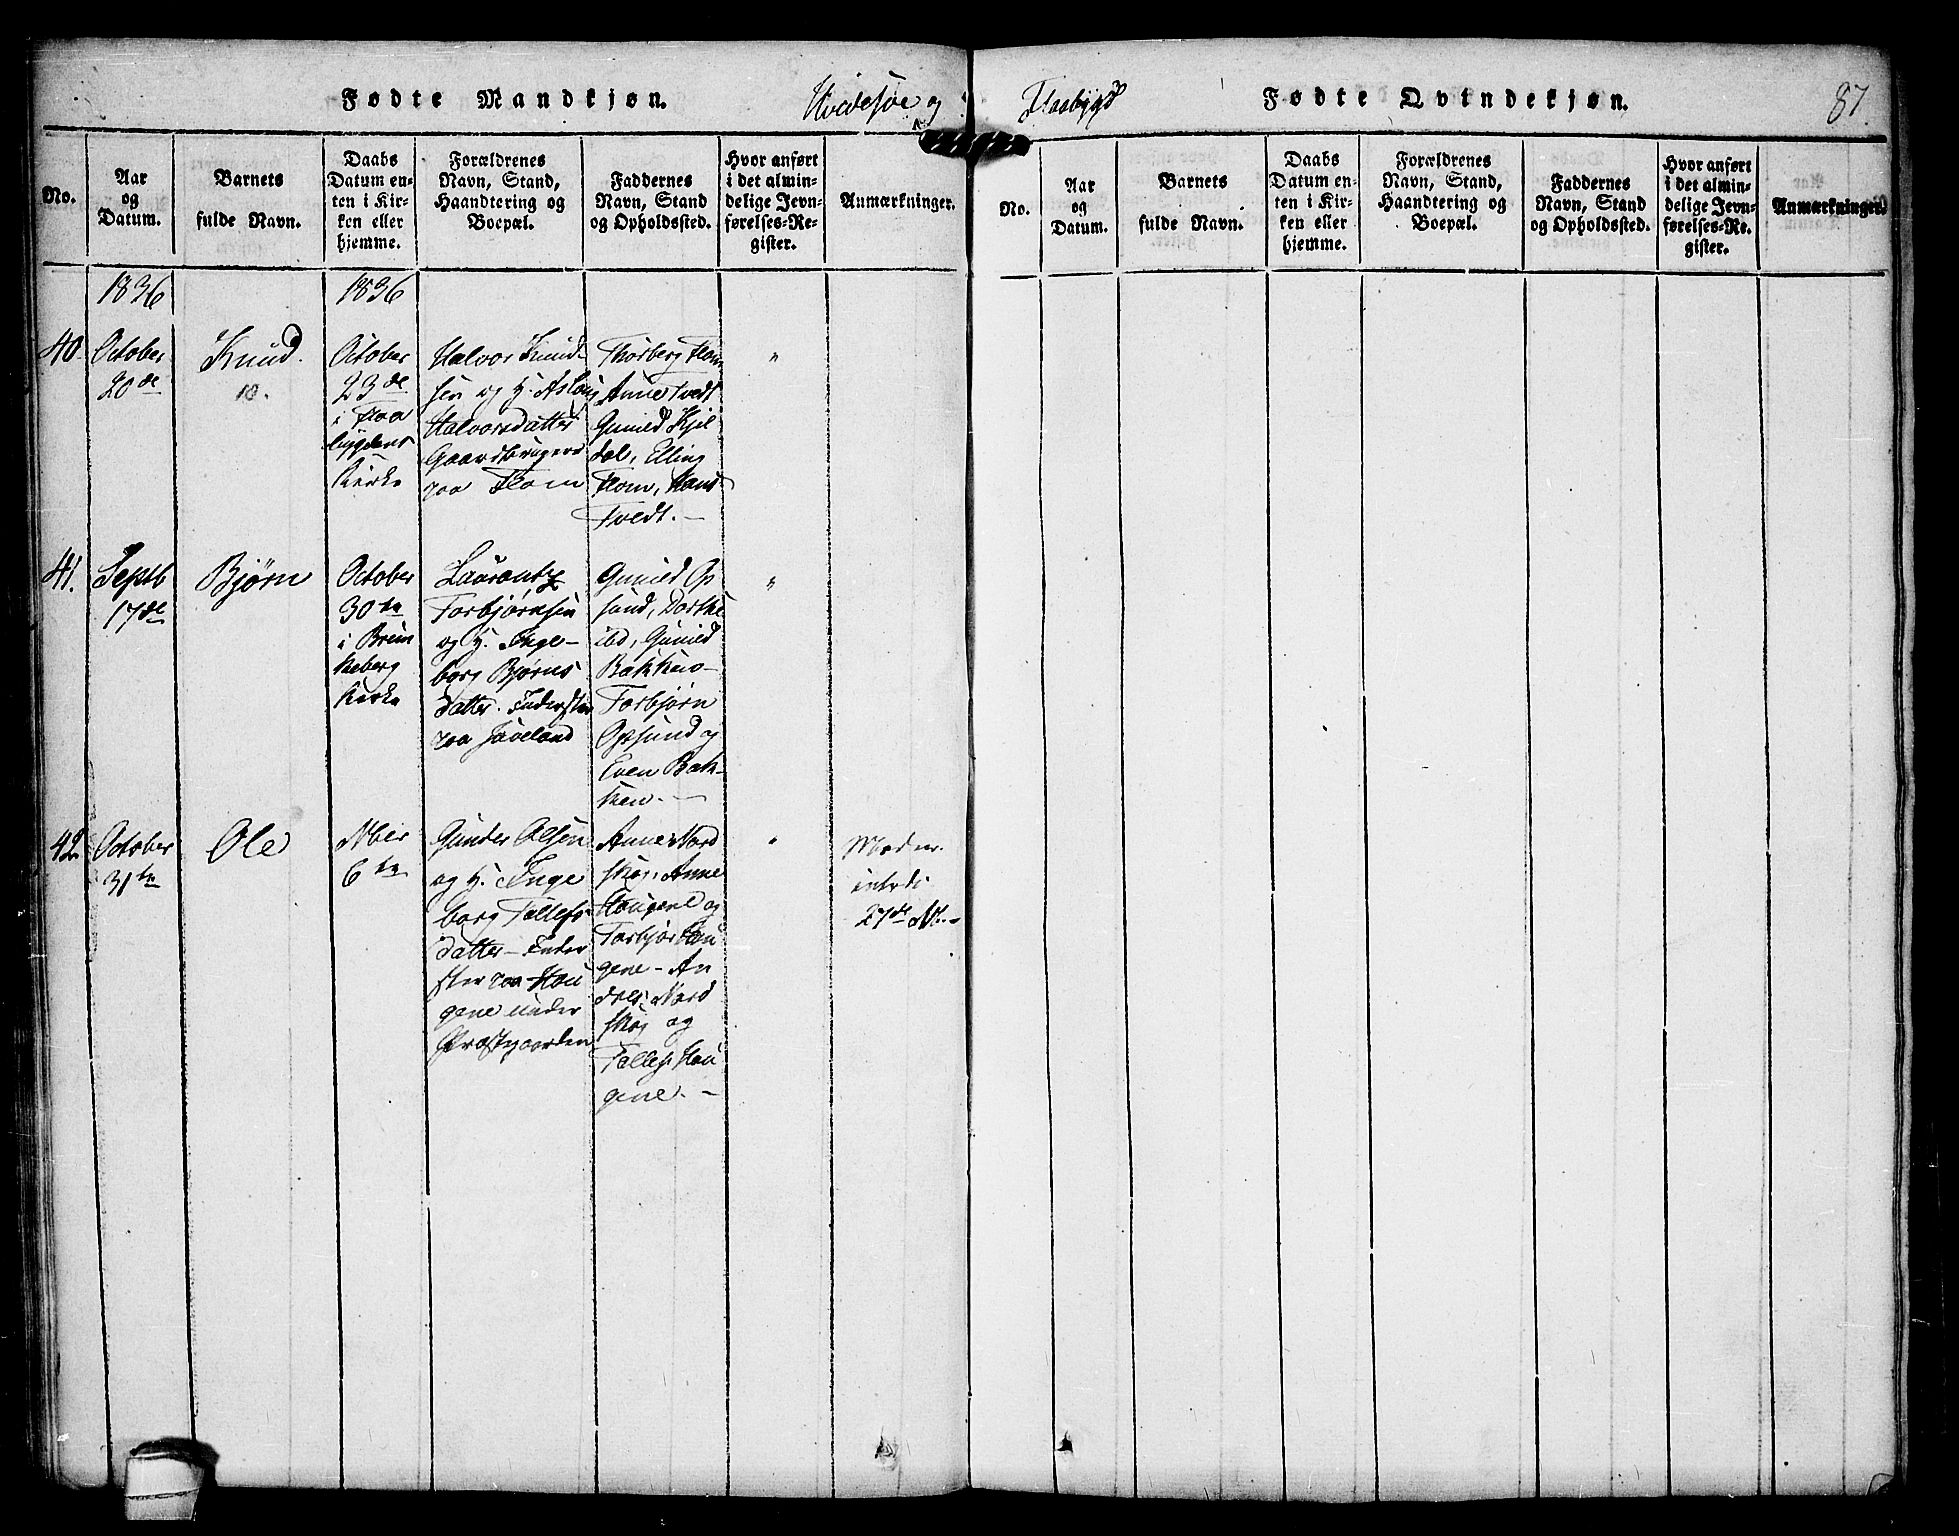 Fødte Mandkjøn.
Hvidesøe og
No.
Aar
og
Datum.
Barnets
fulde Navn.
Daabs
Datum en-
ten i Kir-
ken eller
hjemme.
Forældrenes
Navn, Stand,
Haandtering og
Boepæl.
Faddernes
Navn, Stand
og Opholdssted.
Hvor anført
i det almin-
delige Jevn-
førelses-Re-
gister.
Anmærkninger.
1836
1836
40
October
20de
Knud.
10.
October
23de
i Flaa
bygdens
Kirke
Halvor Knud-
sen og H. Aslaug
Halvorsdatter
Gaardbrugere
paa Flom
Thorberg Flom
Anne Tvedt
Gunild Kjel
dal, Elling
Flom, Hans
Tvedt. —
"
41.
Septb
17de
Bjørn
October
30te
i Brun
keberg
Kirke
Laurantz
Torbjørnsen
og H. Inge-
borg Bjørns
datter. Inderster
paa
Gunild Op
sund,
Gunild
Bakken-
Torbjørn
Opsund og
Even Bak-
ken. —
"
42.
October
31te
Ole
Nber
6te
Gunder Olsen
og H. Inge
borg Tollefs
datter - Inder
ster paa Hou
gene under
Præstgaarden
Anne Nord
skog, Anne
Hougene og
Torbjør Hou
gene - An
dres Nord
skog og
Tollef Hou
gene. —
"
Moder.
introd:
27de N. -
Flaabygd
Fødte Qvindekjøn.
87.
No.
Aar
og
Datum.
Barnets
fulde Navn.
Daabs
Datum en-
ten i Kir-
ken eller
hjemme.
Forældrenes
Navn, Stand,
Haandtering og
Boepæl.
Faddernes
Navn, Stand
og Opholdssted.
Hvor anført
i det almin-
delige Jevn-
førelses-Re-
gister.
Anmærkninger.